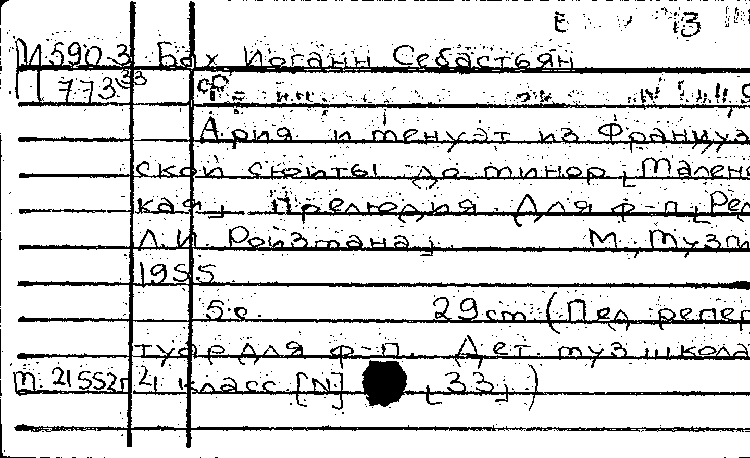 И590-3 Бах Иоганн Себастьян
П 773 33 ср
Ария и менуэт из Француз
ской сюиты до минор, Мален
кая, Прелюдия. Для ф-п, Ред
Л.И. Ройзмана, М, Музги
1955
5 с. 29 см (Пед репер
туар для ф-п. Дет муз школа
4 класс [N] [33])